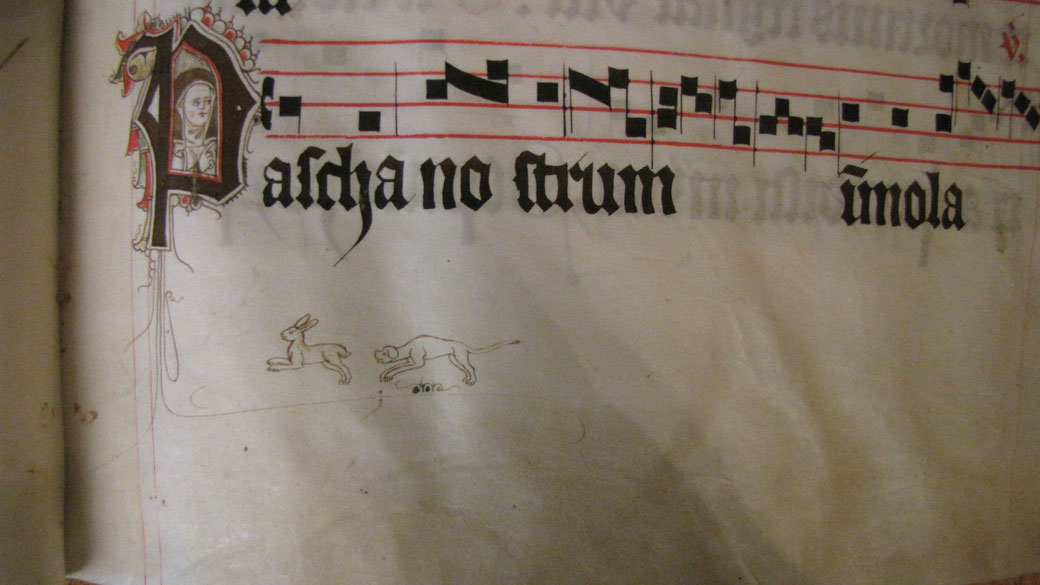 ℣.
Pascha no strum im̄ola